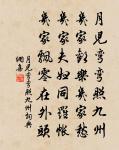 月兒彎彎照九州
幾家歡樂幾家愁
幾家夫婦同羅帳
幾家飄零在外頭
月兒彎彎照九州詞典